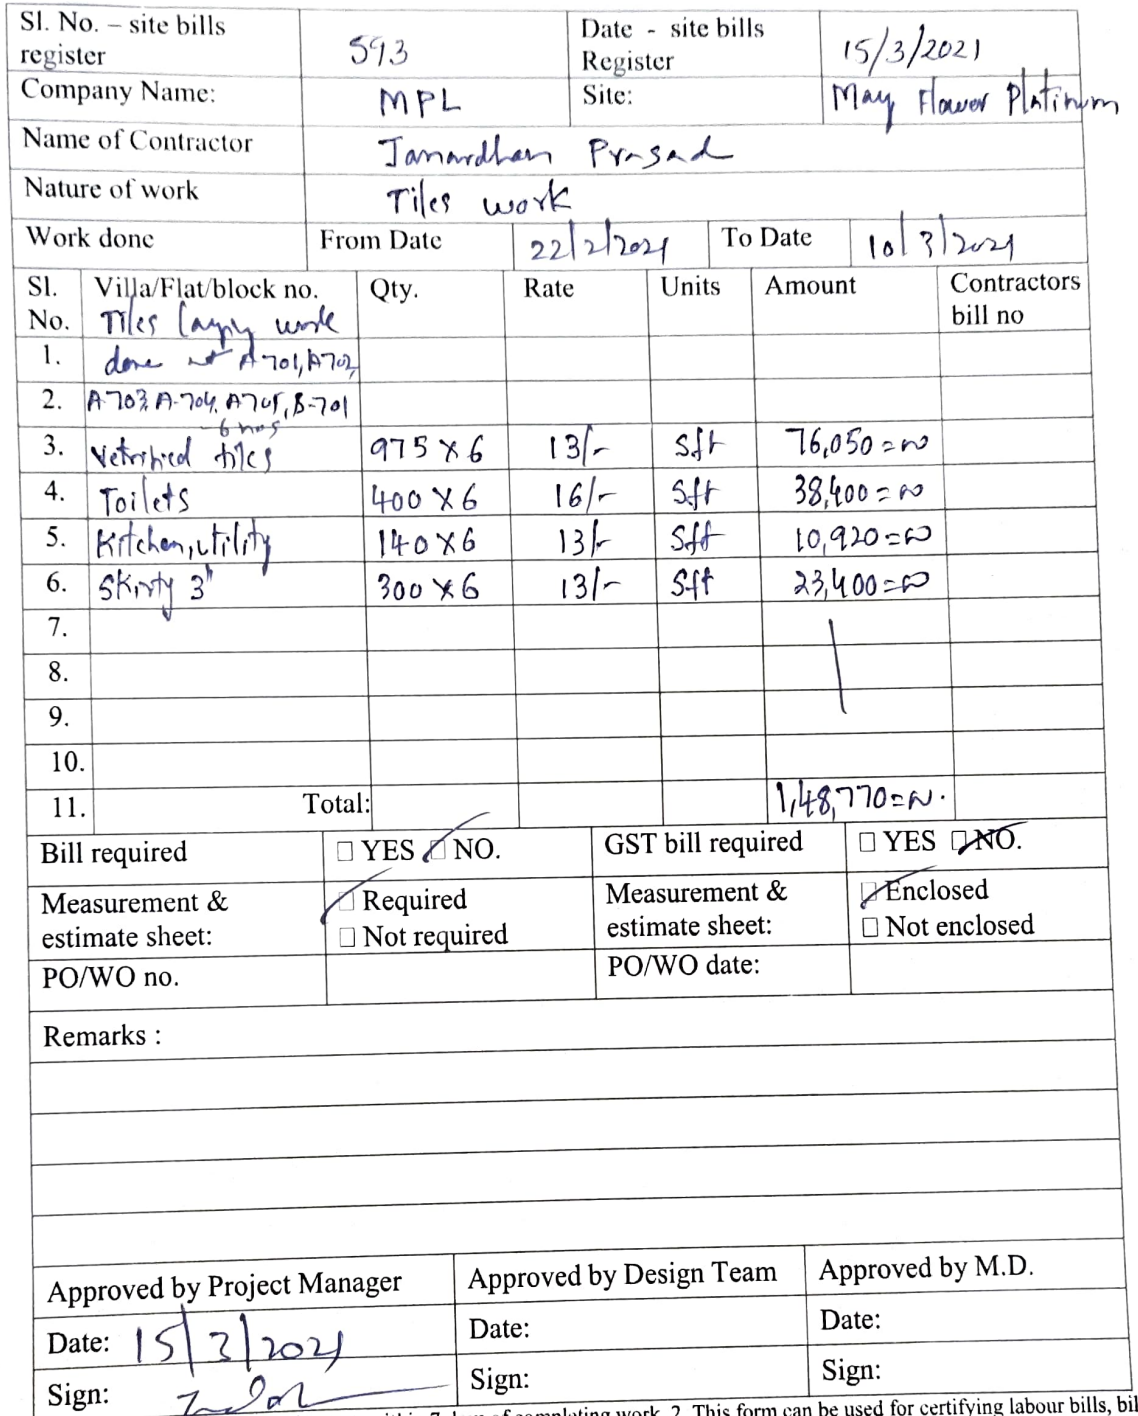 Sl. No. – site bills register 593 Date - site bills Register 15/3/2021
Company Name: MPL Site: May Flower Platinum
Name of Contractor Janardhan Prasad
Nature of work Tiles work
Work done From Date 22/2/2021 To Date 10/3/2021
Sl. No. Villa/Flat/block no. Qty. Rate Units Amount Contractors bill no
Tiles work
1. done at A-701, A-702,
2. A-703, A-704, A-705, B-701
6 nos
3. Vetrified tiles 975 x 6 13/- Sft 76,050=00
4. Toilets 400 x 6 16/- Sft 38,400=00
5. Kitchen, utility 140 x 6 13/- Sft 10,920=00
6. Skirty 3" 300 x 6 13/- Sft 23,400=00
7.
8.
9.
10.
11. Total: 1,48,770=00.
Bill required □ YES □ NO. GST bill required □ YES □ NO.
Measurement & estimate sheet: □ Required □ Not required Measurement & estimate sheet: □ Enclosed □ Not enclosed
PO/WO no. PO/WO date:
Remarks :
Approved by Project Manager Approved by Design Team Approved by M.D.
Date: 15/3/2021 Date: Date:
Sign: Sign: Sign:
of completing work. 2. This form can be used for certifying labour bills, bil